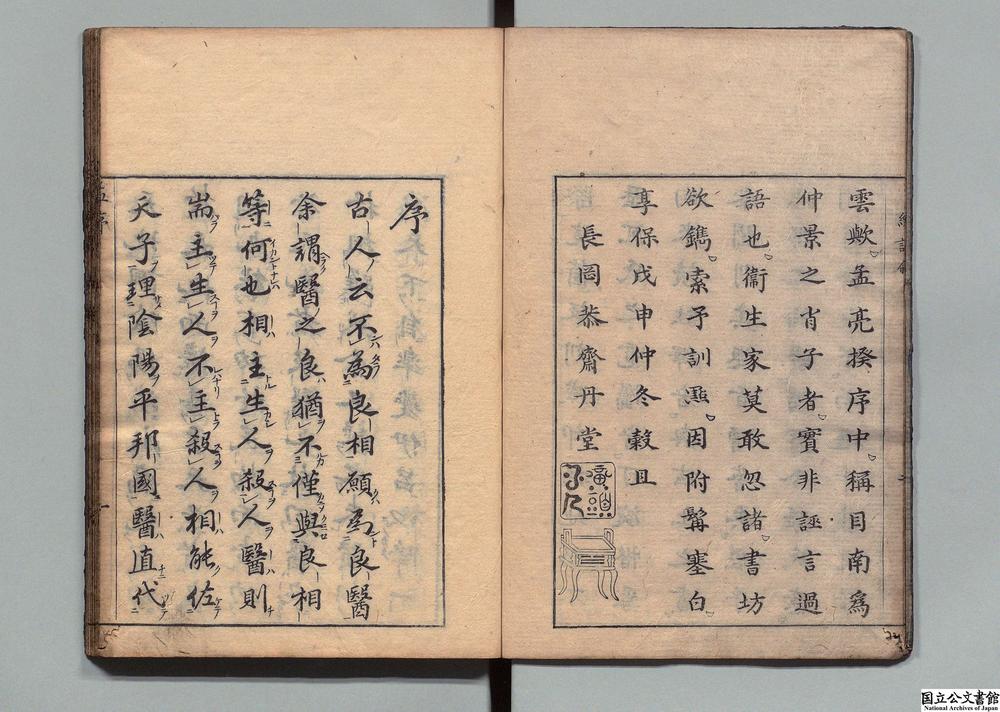 雲歟孟亮揆序中稱目南爲
仲景之肖子者實非誣言過
語也衞生家莫敢忽諸書坊
欲鐫索予訓㸃因附髯塞白
享保戊申仲冬穀旦
長岡恭齋丹堂
序
古人云不為良相願為良醫
余謂醫之良猶不僅與良相
等何也相主生人殺人醫則
耑主生人不主殺人相能佐
天子理陰陽平邦國醫直代
国立公文書館
National Archives of Japan